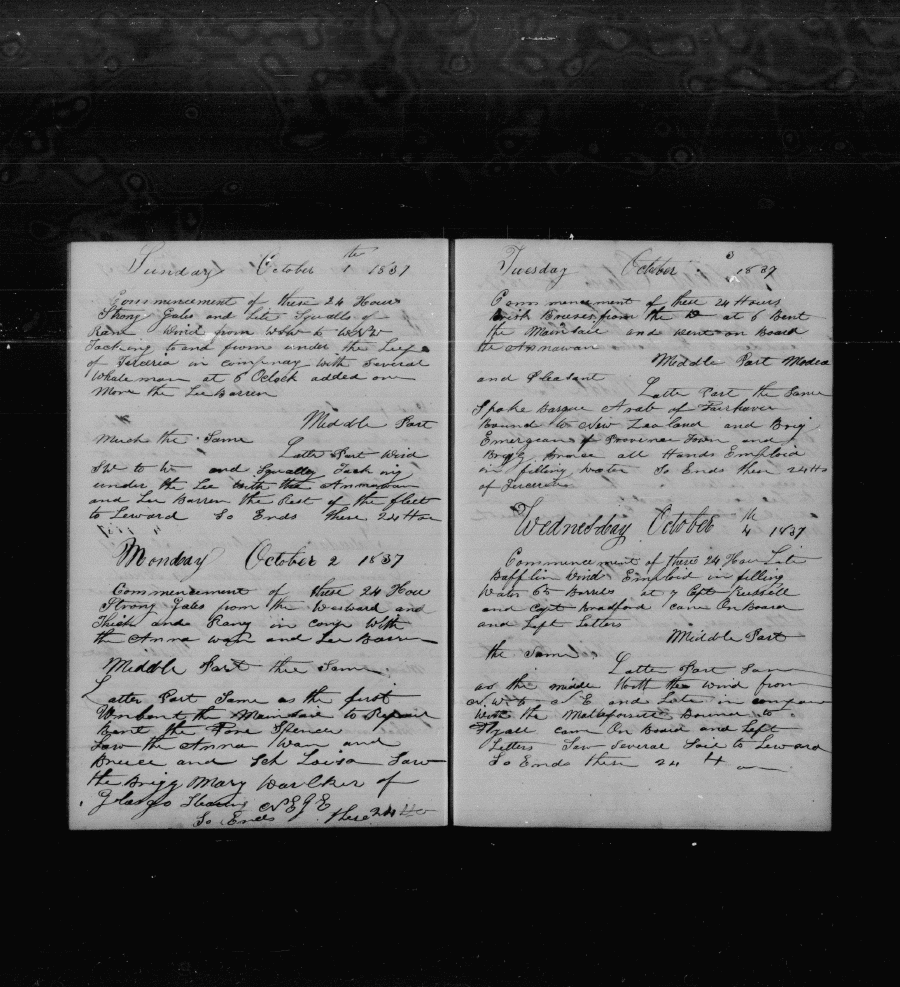 Sunday October 1th 1837
Commencement of these 24 Hours
Strong Gales and late Squalls of
Rain Wind from WSW to WNW
Tacking to and from under the Lee
of Terceria in company with Several
Whale man at 6 Oclock added one
More the Lee Barren
Middle Part
Much the Same
Latter Part Wind
SW to W and Squally Tacking
under the Lee with the Annawan
and Lee Barren the Rest of the fleet
to Leward So Ends these 24 Hou
Monday October 2 1837
Commencement of these 24 Hou
Strong Gales from the Westward and
Thick and Rany in comp With
the Anna wan and Lee Barren
Middle Part the Same
Latter Part Same as the first
Unbent the Mainsail to Repair
Bent the Fore Spencer
Saw the Anna Wan and
and Sch Louisa Saw
the Brigg Mary Waulker of
Glasgo Stearing
So Ends these 24 Ho
Tuesday October 3 1837
Commencement of these 24 Hours
from the at 6 Bent
the Mainsail and Went on Board
the Annawan
Middle Part Modea
and Pleasant
Latter Part the Same
Spoke Barque Arab of Fairhaven
Bound to New Zealand and Brig
of Province Town and
Brigg all Hands Emploid
in filling Water So Ends these 24 Ho
of Terceria
Wednesday October 4th 1837
Commencement of these 24 Hou Late
Bafflin Wind Emploid in filling
Water 65 Barrels at 7 Capt Russell
and Capt Bradford Came On Board
and Left Letters
Middle Part
the Same
Latter Part Sam
as the middle North the Wind from
N.W. to N E and Late in compan
With the
came On Board and Left
Letters Saw Several Sail to Leward
So Ends these 24 H